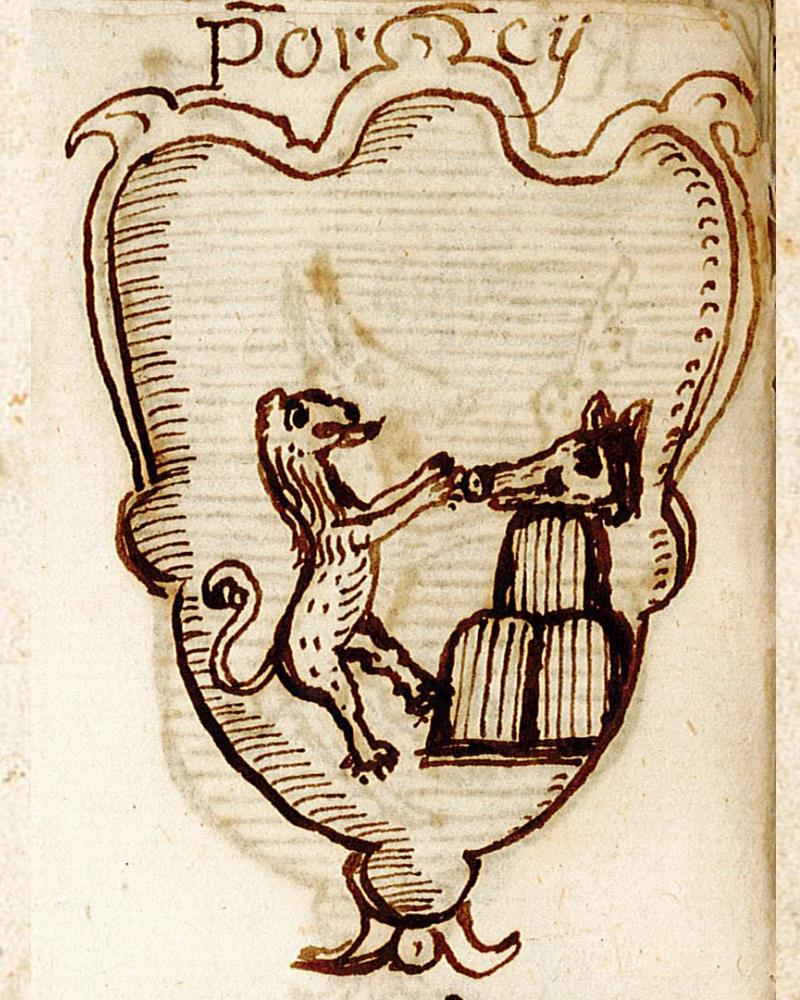 Porcÿ